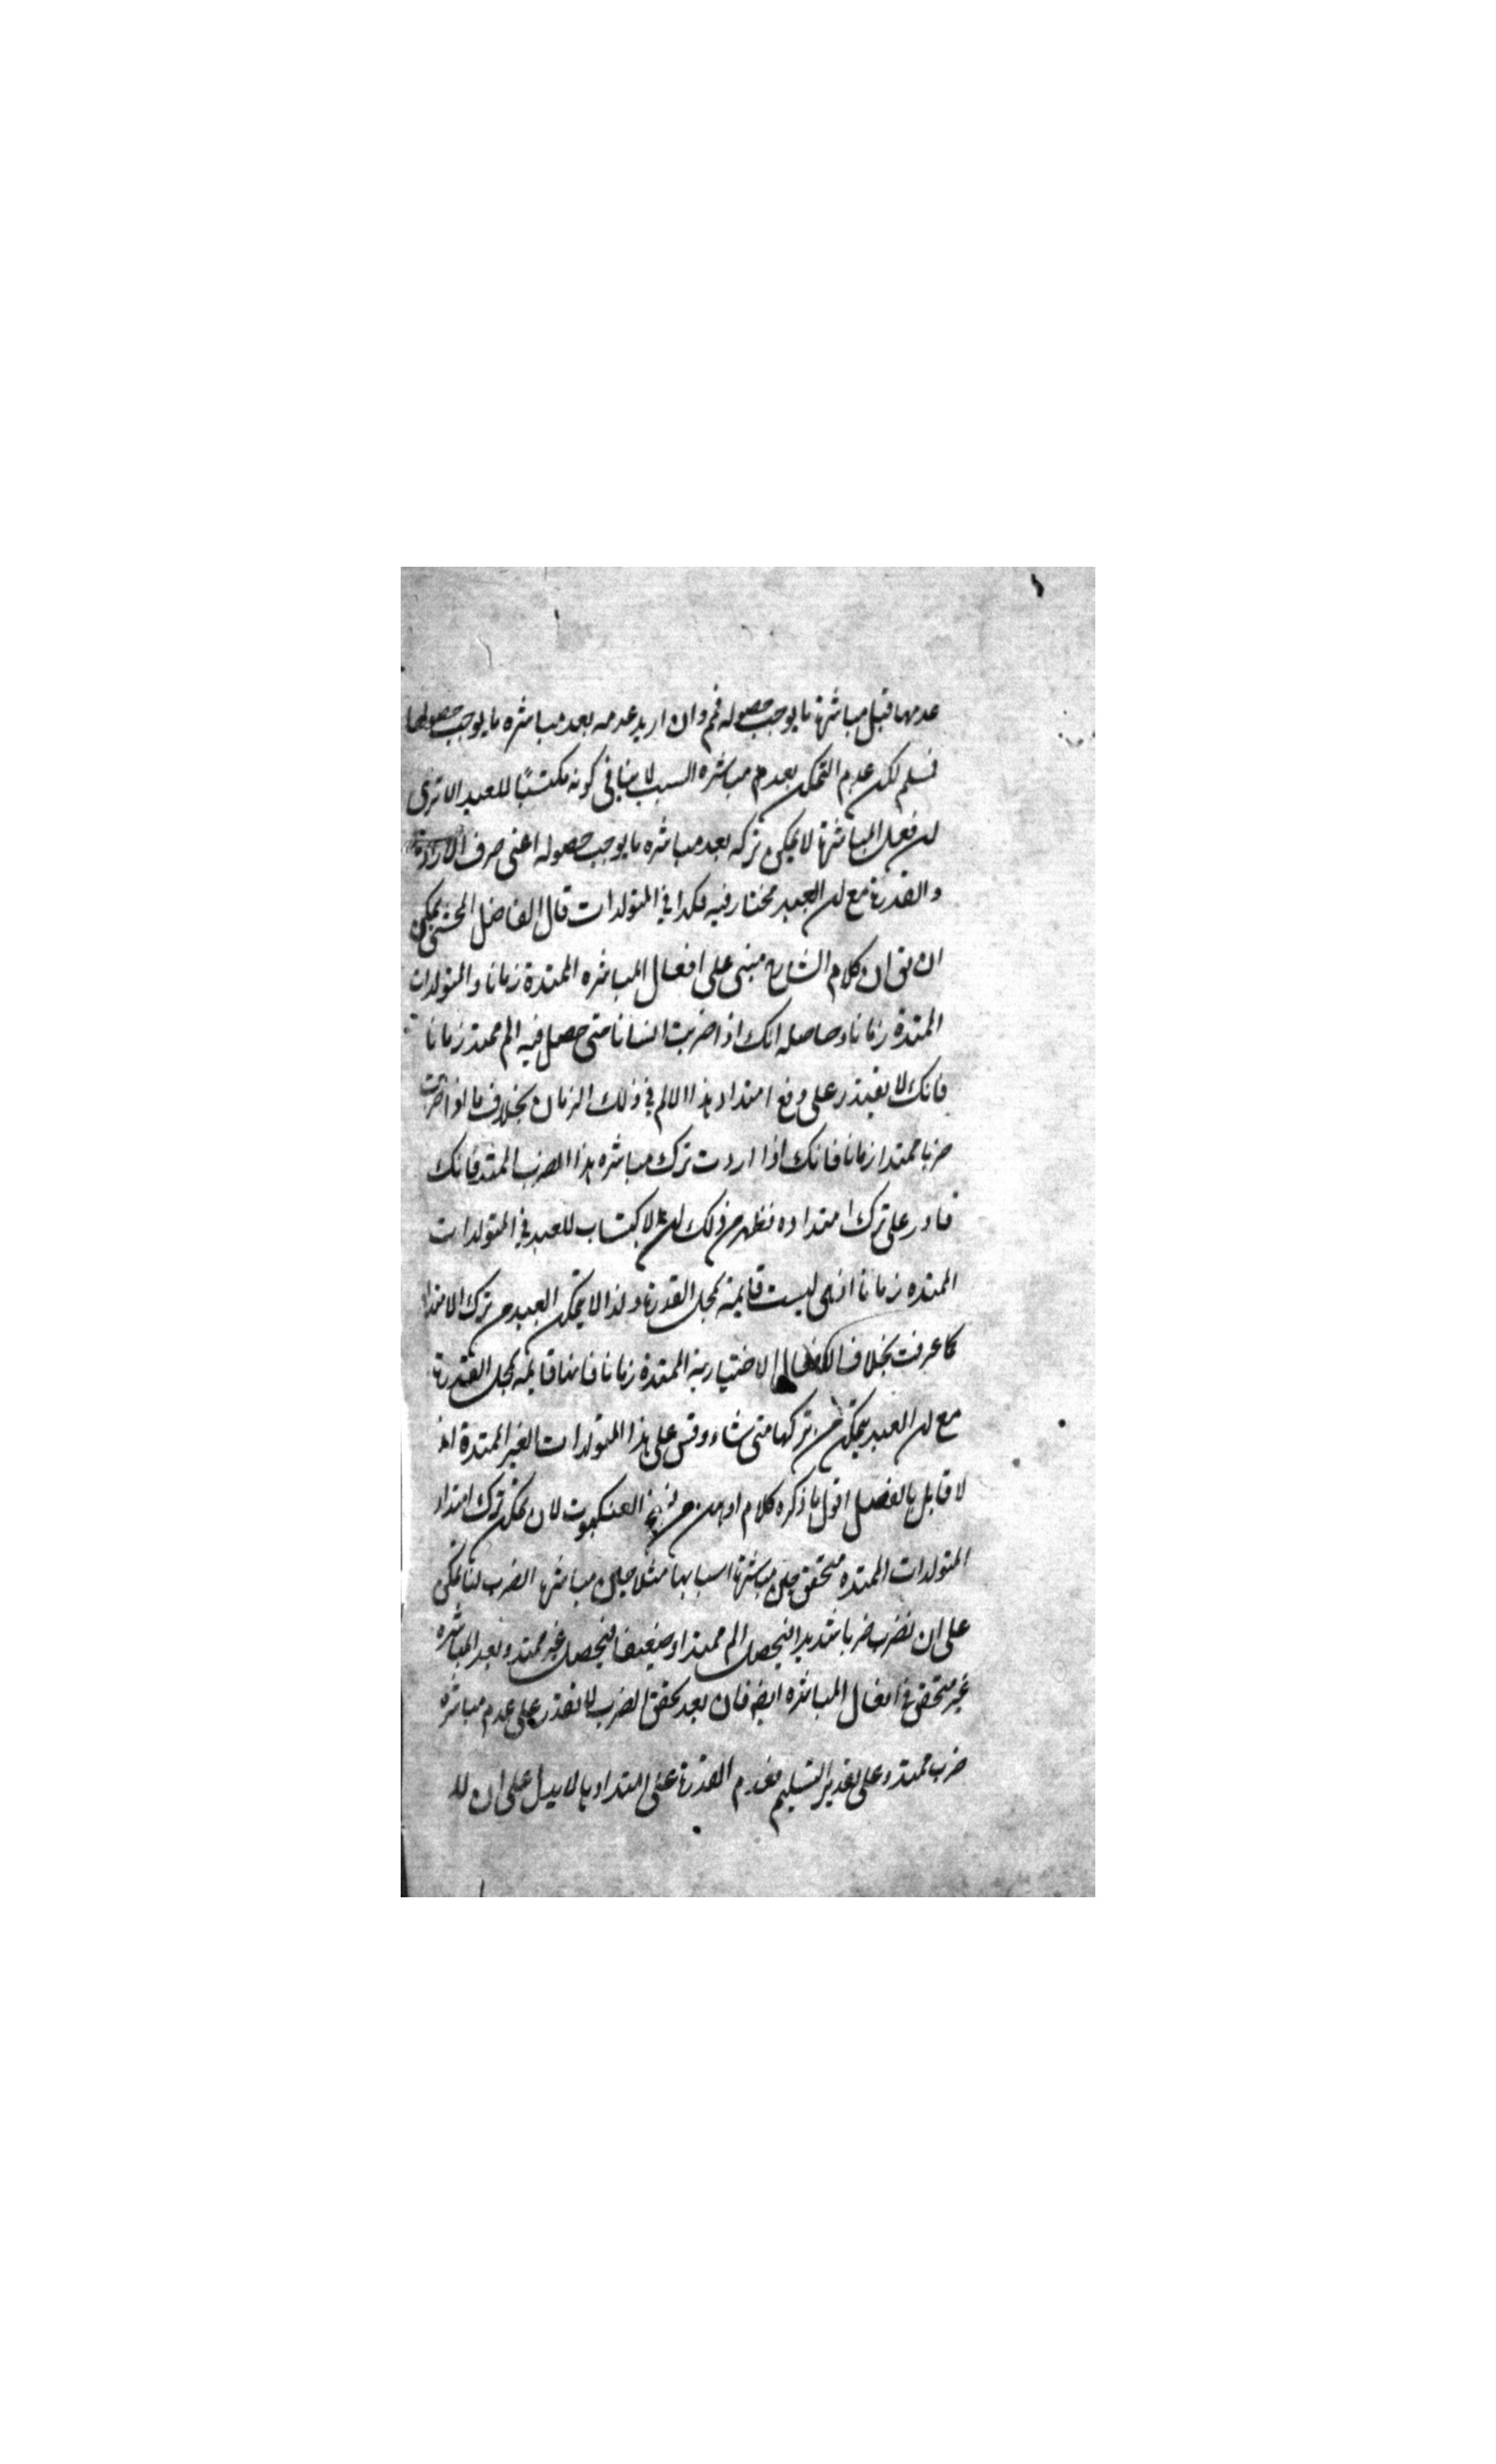 عدمها قبل مباشرة ما يوجب حصوله فم وان اريد عدمه بعد مباشره ما يوجب حصولها
فسلم لكن عدم التمكن بعدم مباشره السبب لا ينافى كونه مكتسبًا للعبد الا ترى
ان فعل المباشرة لا يمكن تركه بعد مباشره ما يوجب حصوله اعنى صرف الارادة
والقدرة مع ان العبد مختار فيه فكذا في المتولدات قال الفاضل المحشى يمكن
ان يق ان كلام الشارح مبنى على افعال المباشره الممتدة زمانا والمتولدات
الممتدة زمانا وحاصله انك اذا ضربت انسانا متى حصل فيه الم ممتد زمانا
فانك لا تقتدر على دفع امتداد هذا الالم في ذلك الزمان بخلاف ما اذا ضربت
ضربا ممتدا زمانا فانك اذا اردت ترك مباشره هذا الضرب الممتد فانك
قادر على ترك امتداده فظهر من ذلك ان لا اكتساب للعبد في المتولدات
الممتده زمانا اذ هى ليست قايمة بمحل القدرة ولذا لا يتمكن العبد من ترك الامتداد
كما عرفت بخلاف الافعال الاختيارية الممتدة زمانا فانها قايمة بمحل القدرة
مع ان العبد يتمكن من تركها متى شاء وقس على هذا المتولدات الغير الممتدة اذ
لا قايل بالفصل اقول ما ذكره كلام اوهن من نسج العنكبوت لان تمكن ترك امتداد
المتولدات الممتده متحقق حين مباشرة اسبابها مثلا حين مباشرة الضرب لنا تمكن
على ان نضرب ضربا شديدا فيحصل الم ممتد او ضعيفا فيحصل غير ممتد وبعد المباشره
غير متحقق في افعال المباشره ايضه فان بعد تحقق الضرب لا نقدر على عدم مباشره
ضرب ممتد وعلى تقدير التسليم فعدم القدرة على امتدادها لا يدل على ان لا